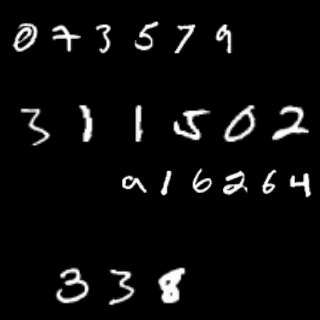 073579
311502
916264
338